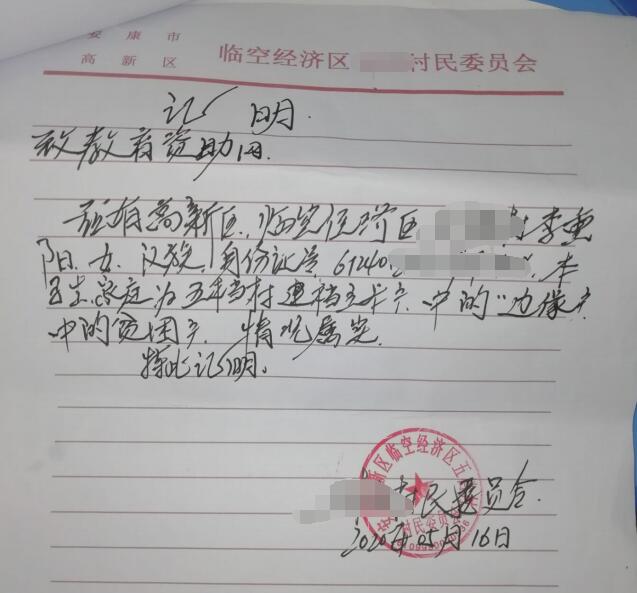 安康市
高新区 临空经济区 村民委员会
证 明.
致教育资助网.
兹有高新区.临空经济区 李
阳.女.汉族.身份证号 61240 .
家庭为 村建档立卡户.中的"边缘户
中的贫困户.情况属实.
特此证明.
新区临空经济区五
村民委员会
村民委员会.
2020年05月16日